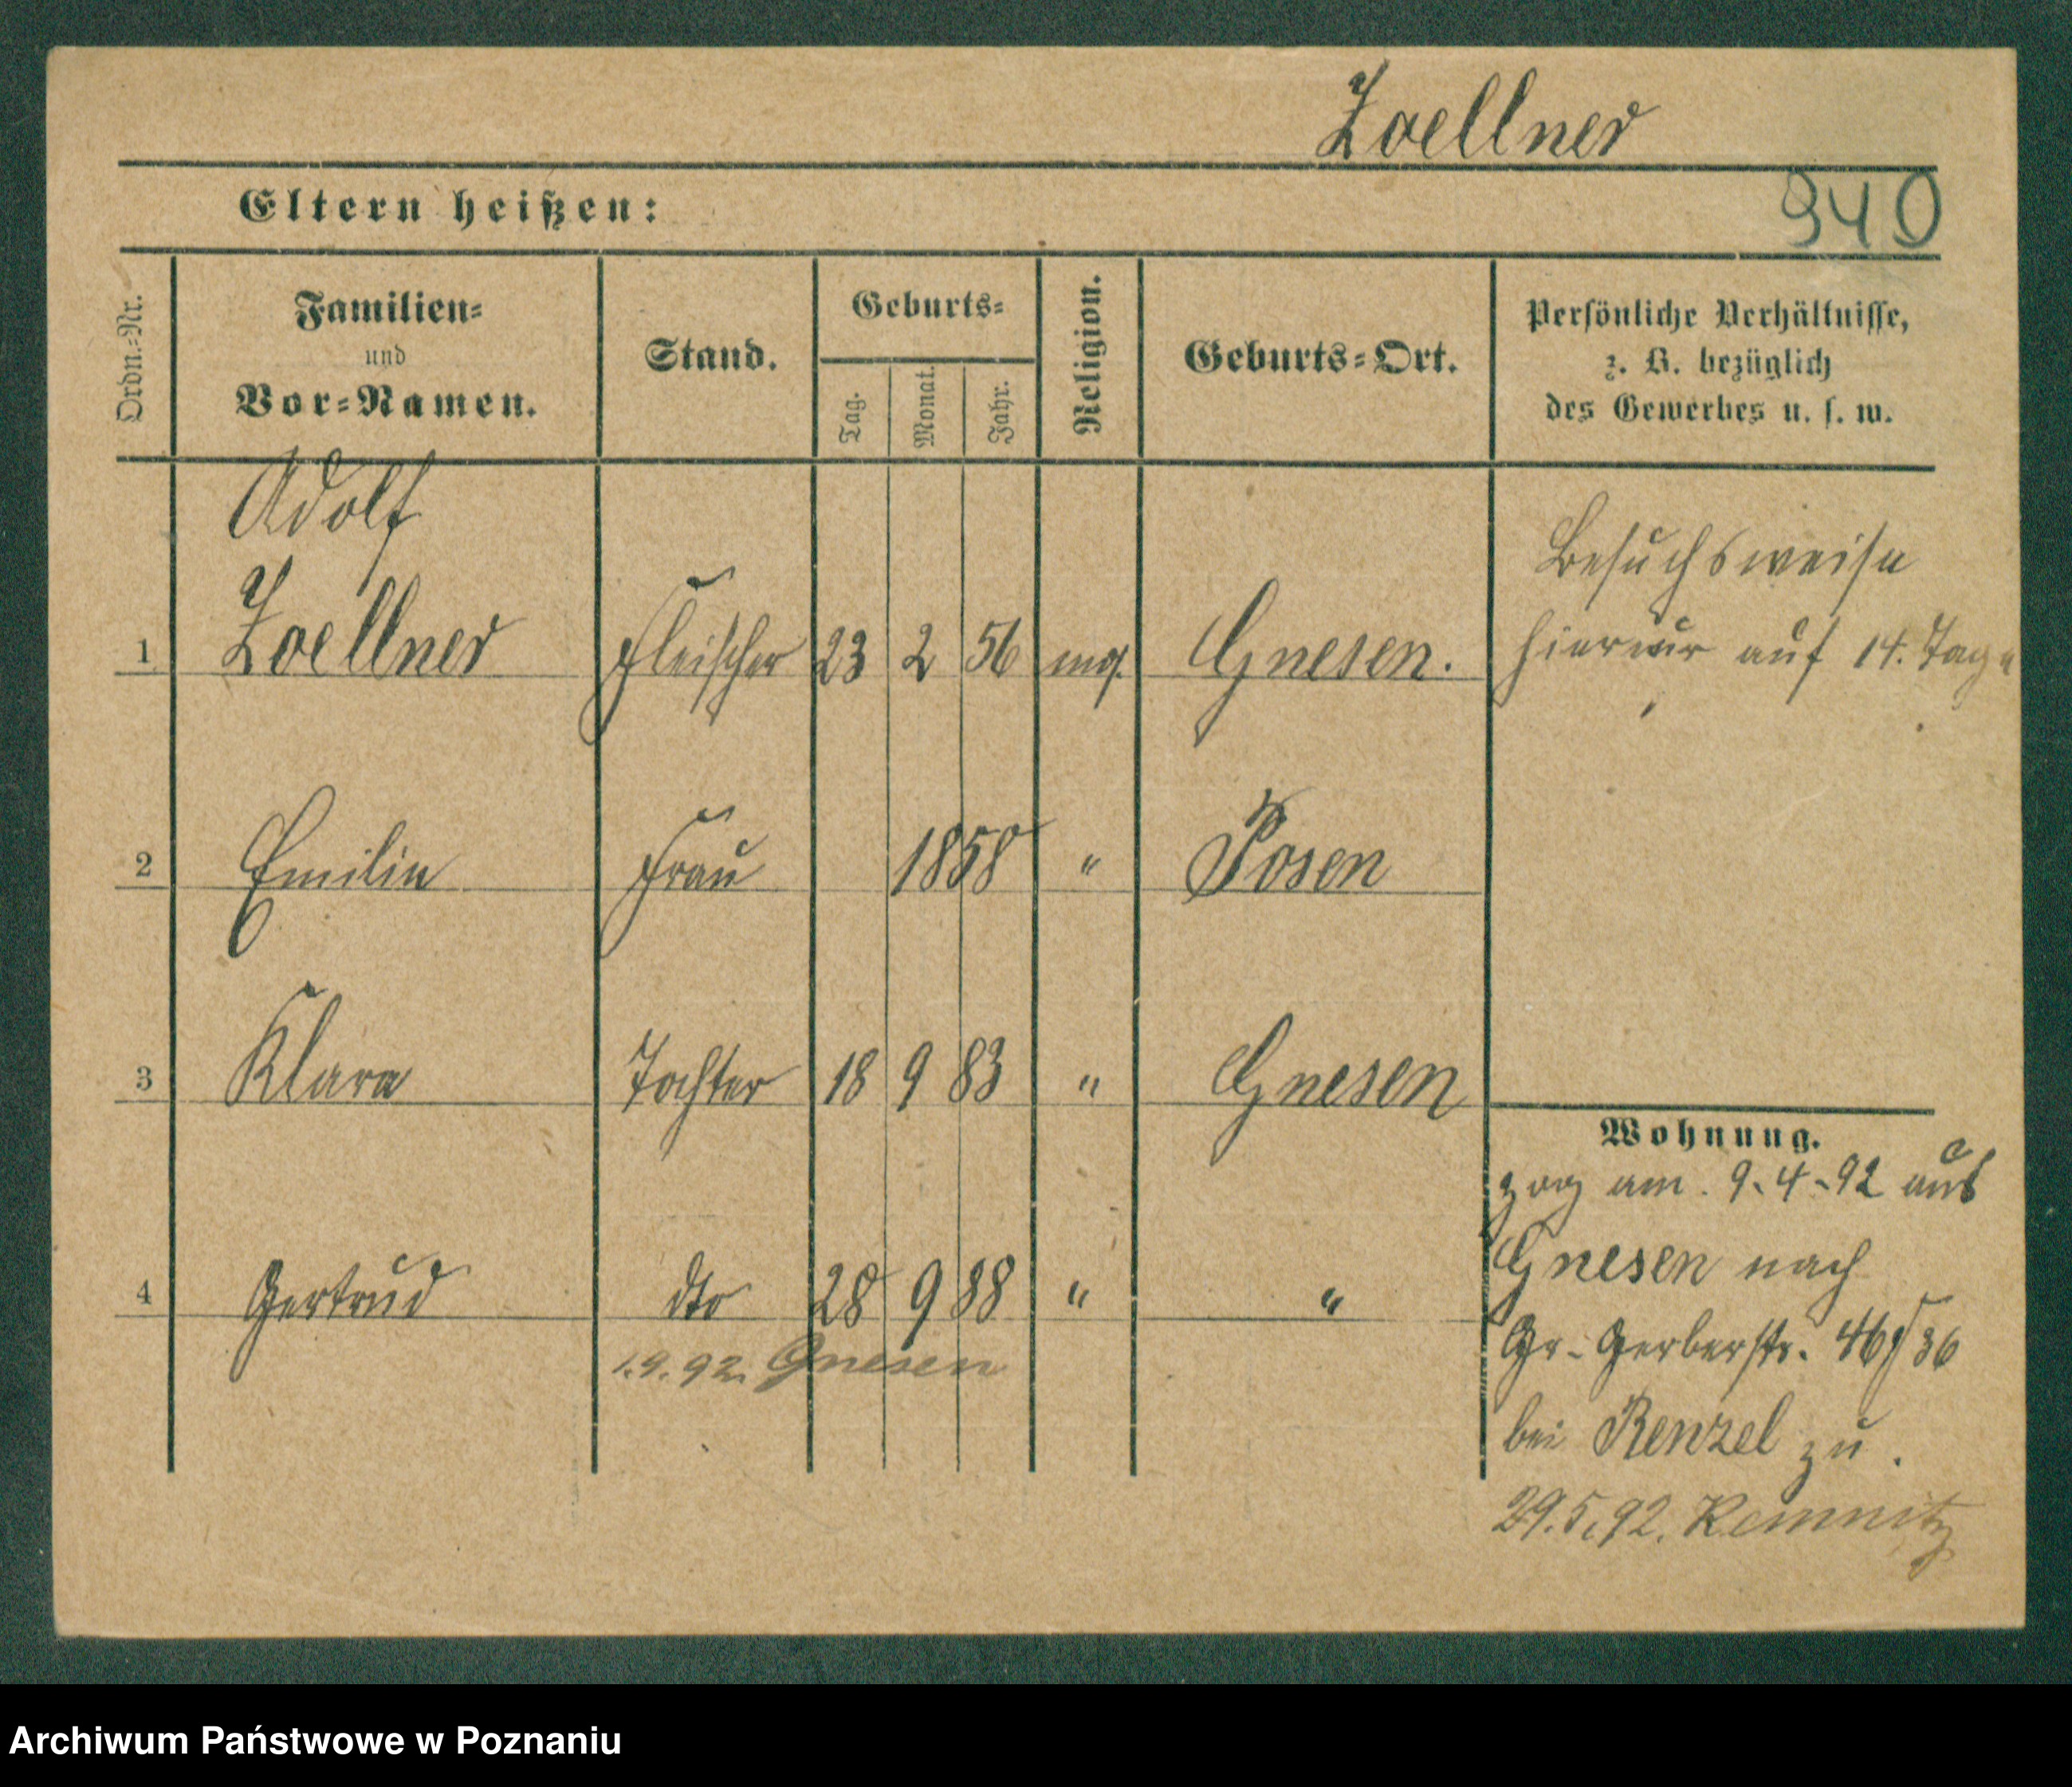 Zoellner
Eltern heißen:
940
Ordn.-Nr.
Familien-
und
Vor-Namen.
Stand.
Geburts-
Tag.
Monat.
Jahr.
Religion.
Geburts-Ort.
Persönliche Verhältnisse,
z. B. bezüglich
des Gewerbes u. s. w.
Adolf
1 Zoellner Fleischer 23 2 56 Gnesen.
Besuchsweise
hier auf 14. Tage
2 Emilie Frau 1858 " Posen
3 Klara Tochter 18 9 83 " Gnesen
4 Gertrud dto 28 9 88 " "
1.9.92. Gnesen
Wohnung.
zog am. 9-4-92 aus
Gnesen nach
Gr-Gerberstr. 46/36
bei Renzel zu.
29.5.92. Remnitz
Archiwum Państwowe w Poznaniu